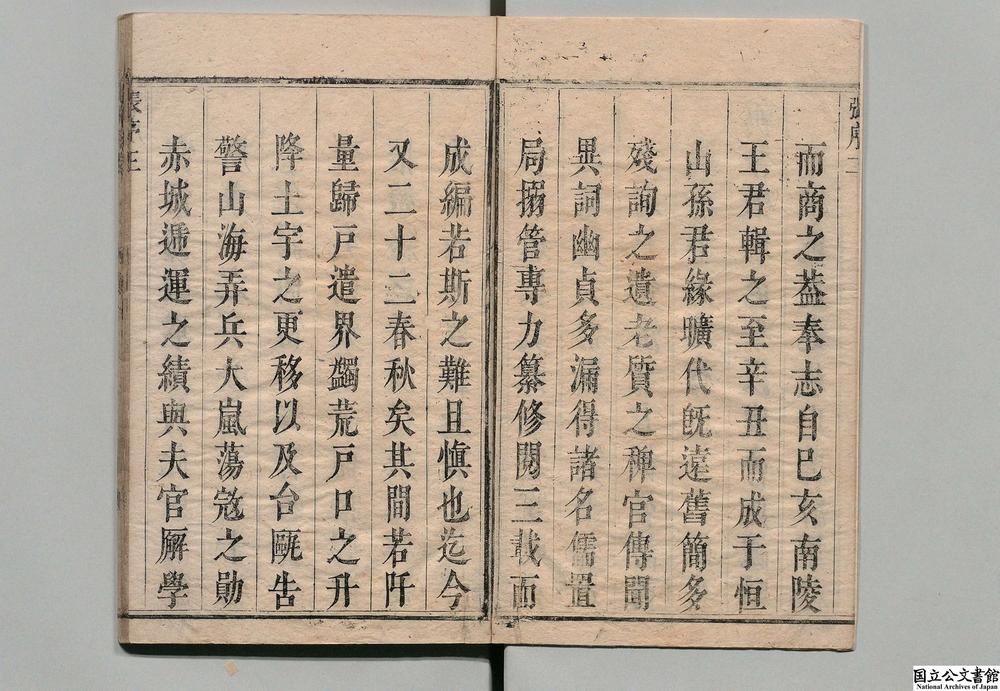 張序二
而商之葢奉志自巳亥南陵
王君輯之至辛丑而成于恒
山孫君緣曠代旣遠舊簡多
殘詢之遺老質之稗官傳聞
異詞幽貞多漏得諸名儒置
局搦管專力纂修閱三載而
成編若斯之難且慎也迄今
又二十二春秋矣其間若阡
量歸戶遣界蠲荒戶口之升
降土宇之更移以及台甌告
警山海弄兵大嵐蕩寇之勛
赤城遞運之績與夫官廨學
張序三
国立公文書館
National Archives of Japan